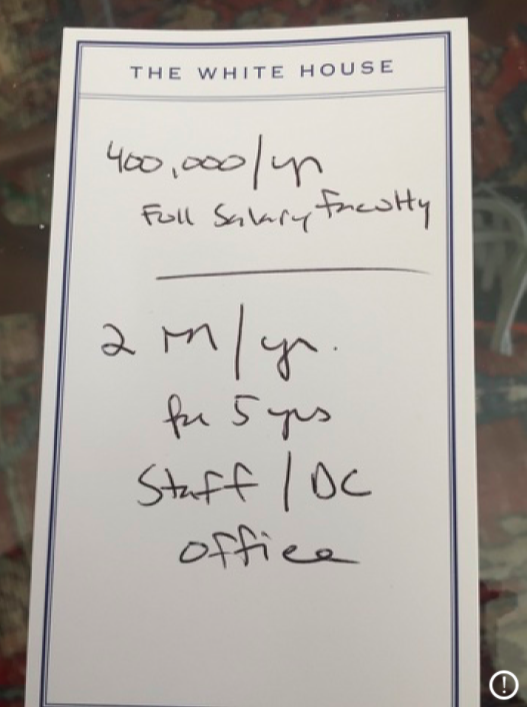 THE WHITE HOUSE
400,000/yr
Full Salary Faculty
2 m/yr.
for 5 yrs
Staff / DC
office